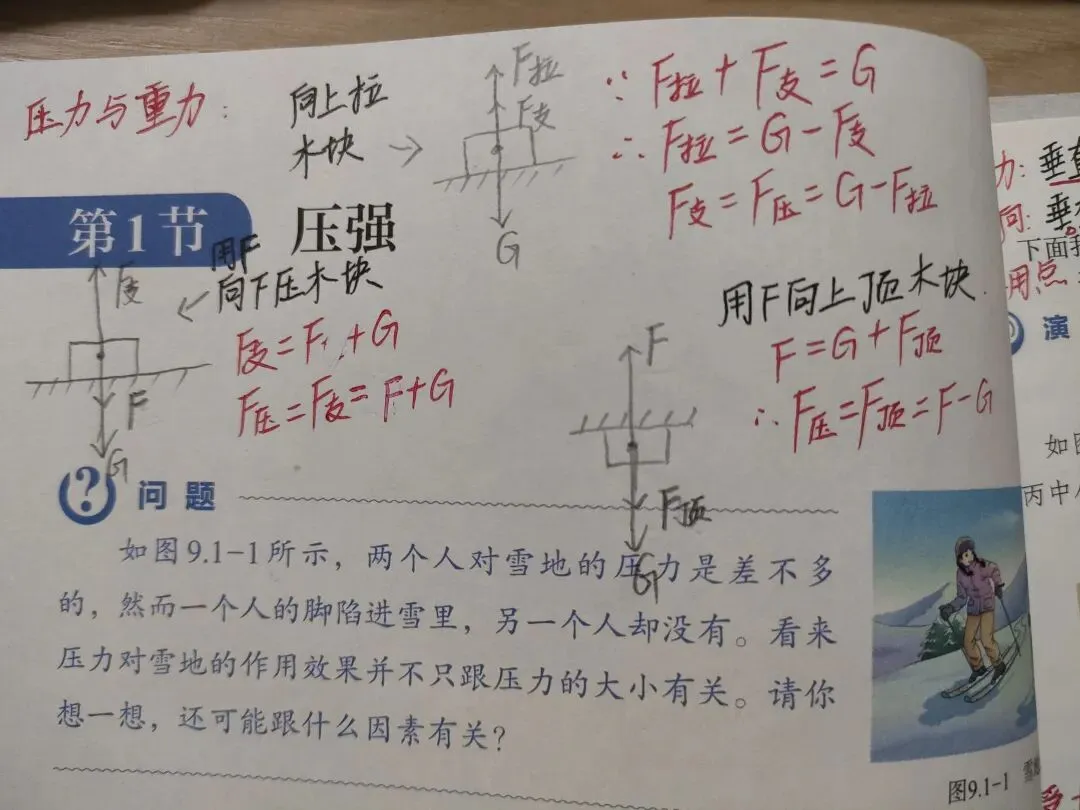 压力与重力:
向上拉
木块
F拉
F支
G
∵ F拉 + F支 = G
∴ F拉 = G - F支
F支 = F压 = G - F拉
第1节 压强
用F
向下压木块
F支
F
G
F支 = F + G
F压 = F支 = F + G
用F向上顶木块
F = G + F顶
∴ F压 = F顶 = F - G
F
F顶
G
问题
如图9.1-1所示，两个人对雪地的压力是差不多
的，然而一个人的脚陷进雪里，另一个人却没有。看来
压力对雪地的作用效果并不只跟压力的大小有关。请你
想一想，还可能跟什么因素有关？
图9.1-1
力: 垂直
向: 垂
下面
用点:
演
如
丙中